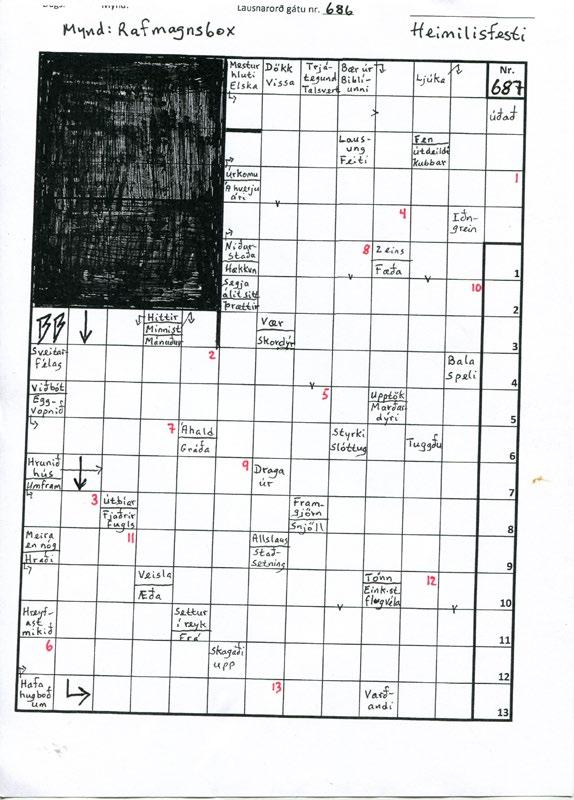 Lausnarorð gátu nr. 686
Mynd: Rafmagnsbox
Heimilisfesti
Mestur
hluti
Elska
Dökk
Vissa
Trjá-
tegund
Talsvert
Bær úr
Bibli-
unni
Ljúka
Nr.
687
úðað
Laus-
ung
Feiti
Fen
útdeildi
kubbar
Úrkomu
Á hverju
ári
1
4
Iðn-
grein
Niður-
staða
Hækkun
Segja
álit sitt
Þrættir
8
2 eins
Fæða
10
1
2
Hittir
Minnist
Mánuður
Vær
Skordýr
3
Sveitar-
félag
2
Bala
Speli
4
Viðbót
Egg-
vopnið
5
Upptök
Marðar
dýri
5
7
Áhald
Gráða
Styrki
Slóttug
Tuggðu
6
Hrunið
hús
Umfram
9
Draga
úr
7
3
Útbíar
Fjaðrir
Fugls
Fram-
gjörn
Snjöll
8
Meira
en nóg
Hraði
11
Allslaus
Stað-
setning
9
Veisla
Æða
Tónn
Einkist.
flugvéla
12
10
Hreyf-
ast
mikið
Settur
í reyk
Frá
11
6
Skagaði
upp
12
Hafa
hugboð
um
13
Varð-
andi
13